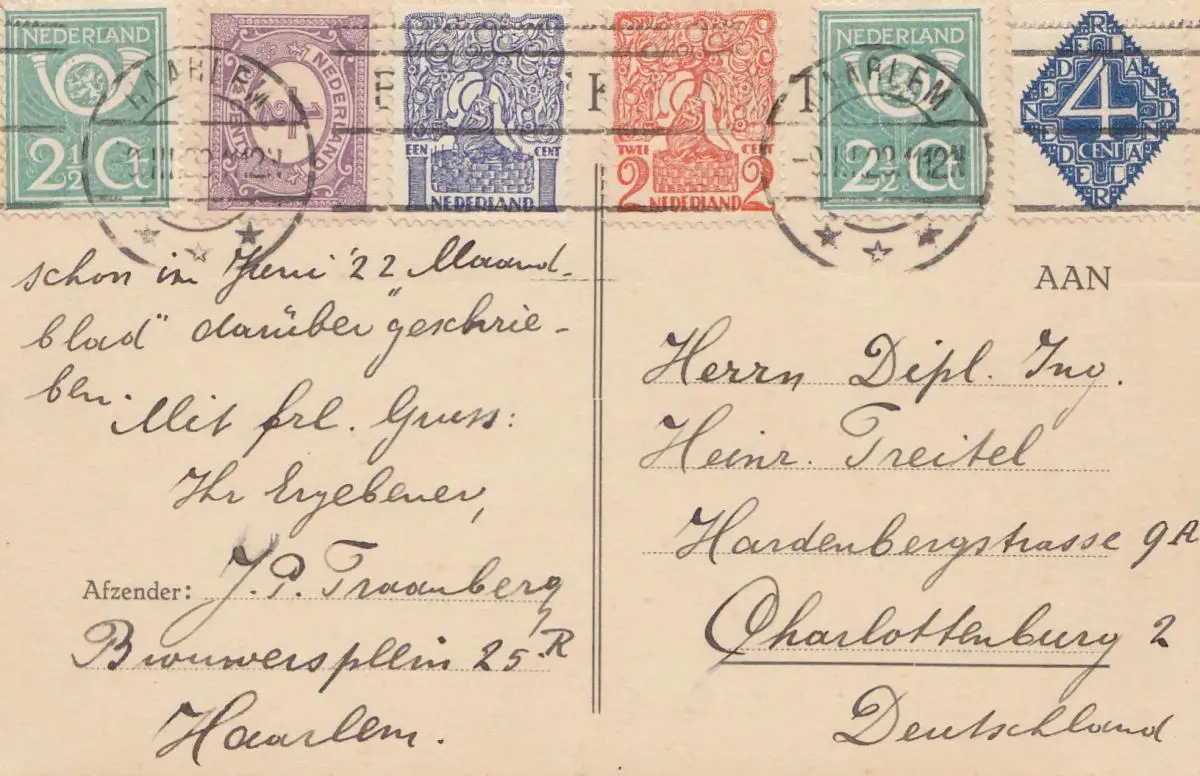 NEDERLAND
2½ Ct
½ CENT NEDERLAND
EEN CENT
1 NEDERLAND 1
TWEE CENT
2 NEDERLAND 2
NEDERLAND
2½ Ct
NEDERLAND
4
CENT
HAARLEM
HAARLEM
-9.III.23.11-12N
schon im Juni '22 "Maand-
blad" darüber geschrie-
ben.
Mit frl. Gruss:
Ihr Ergebener,
Afzender: J. P. Traanberg,
Brouwersplein 25 R
Haarlem.
AAN
Herrn Dipl. Ing.
Heinr. Treitel
Hardenbergstrasse 9A
Charlottenburg 2
Deutschland